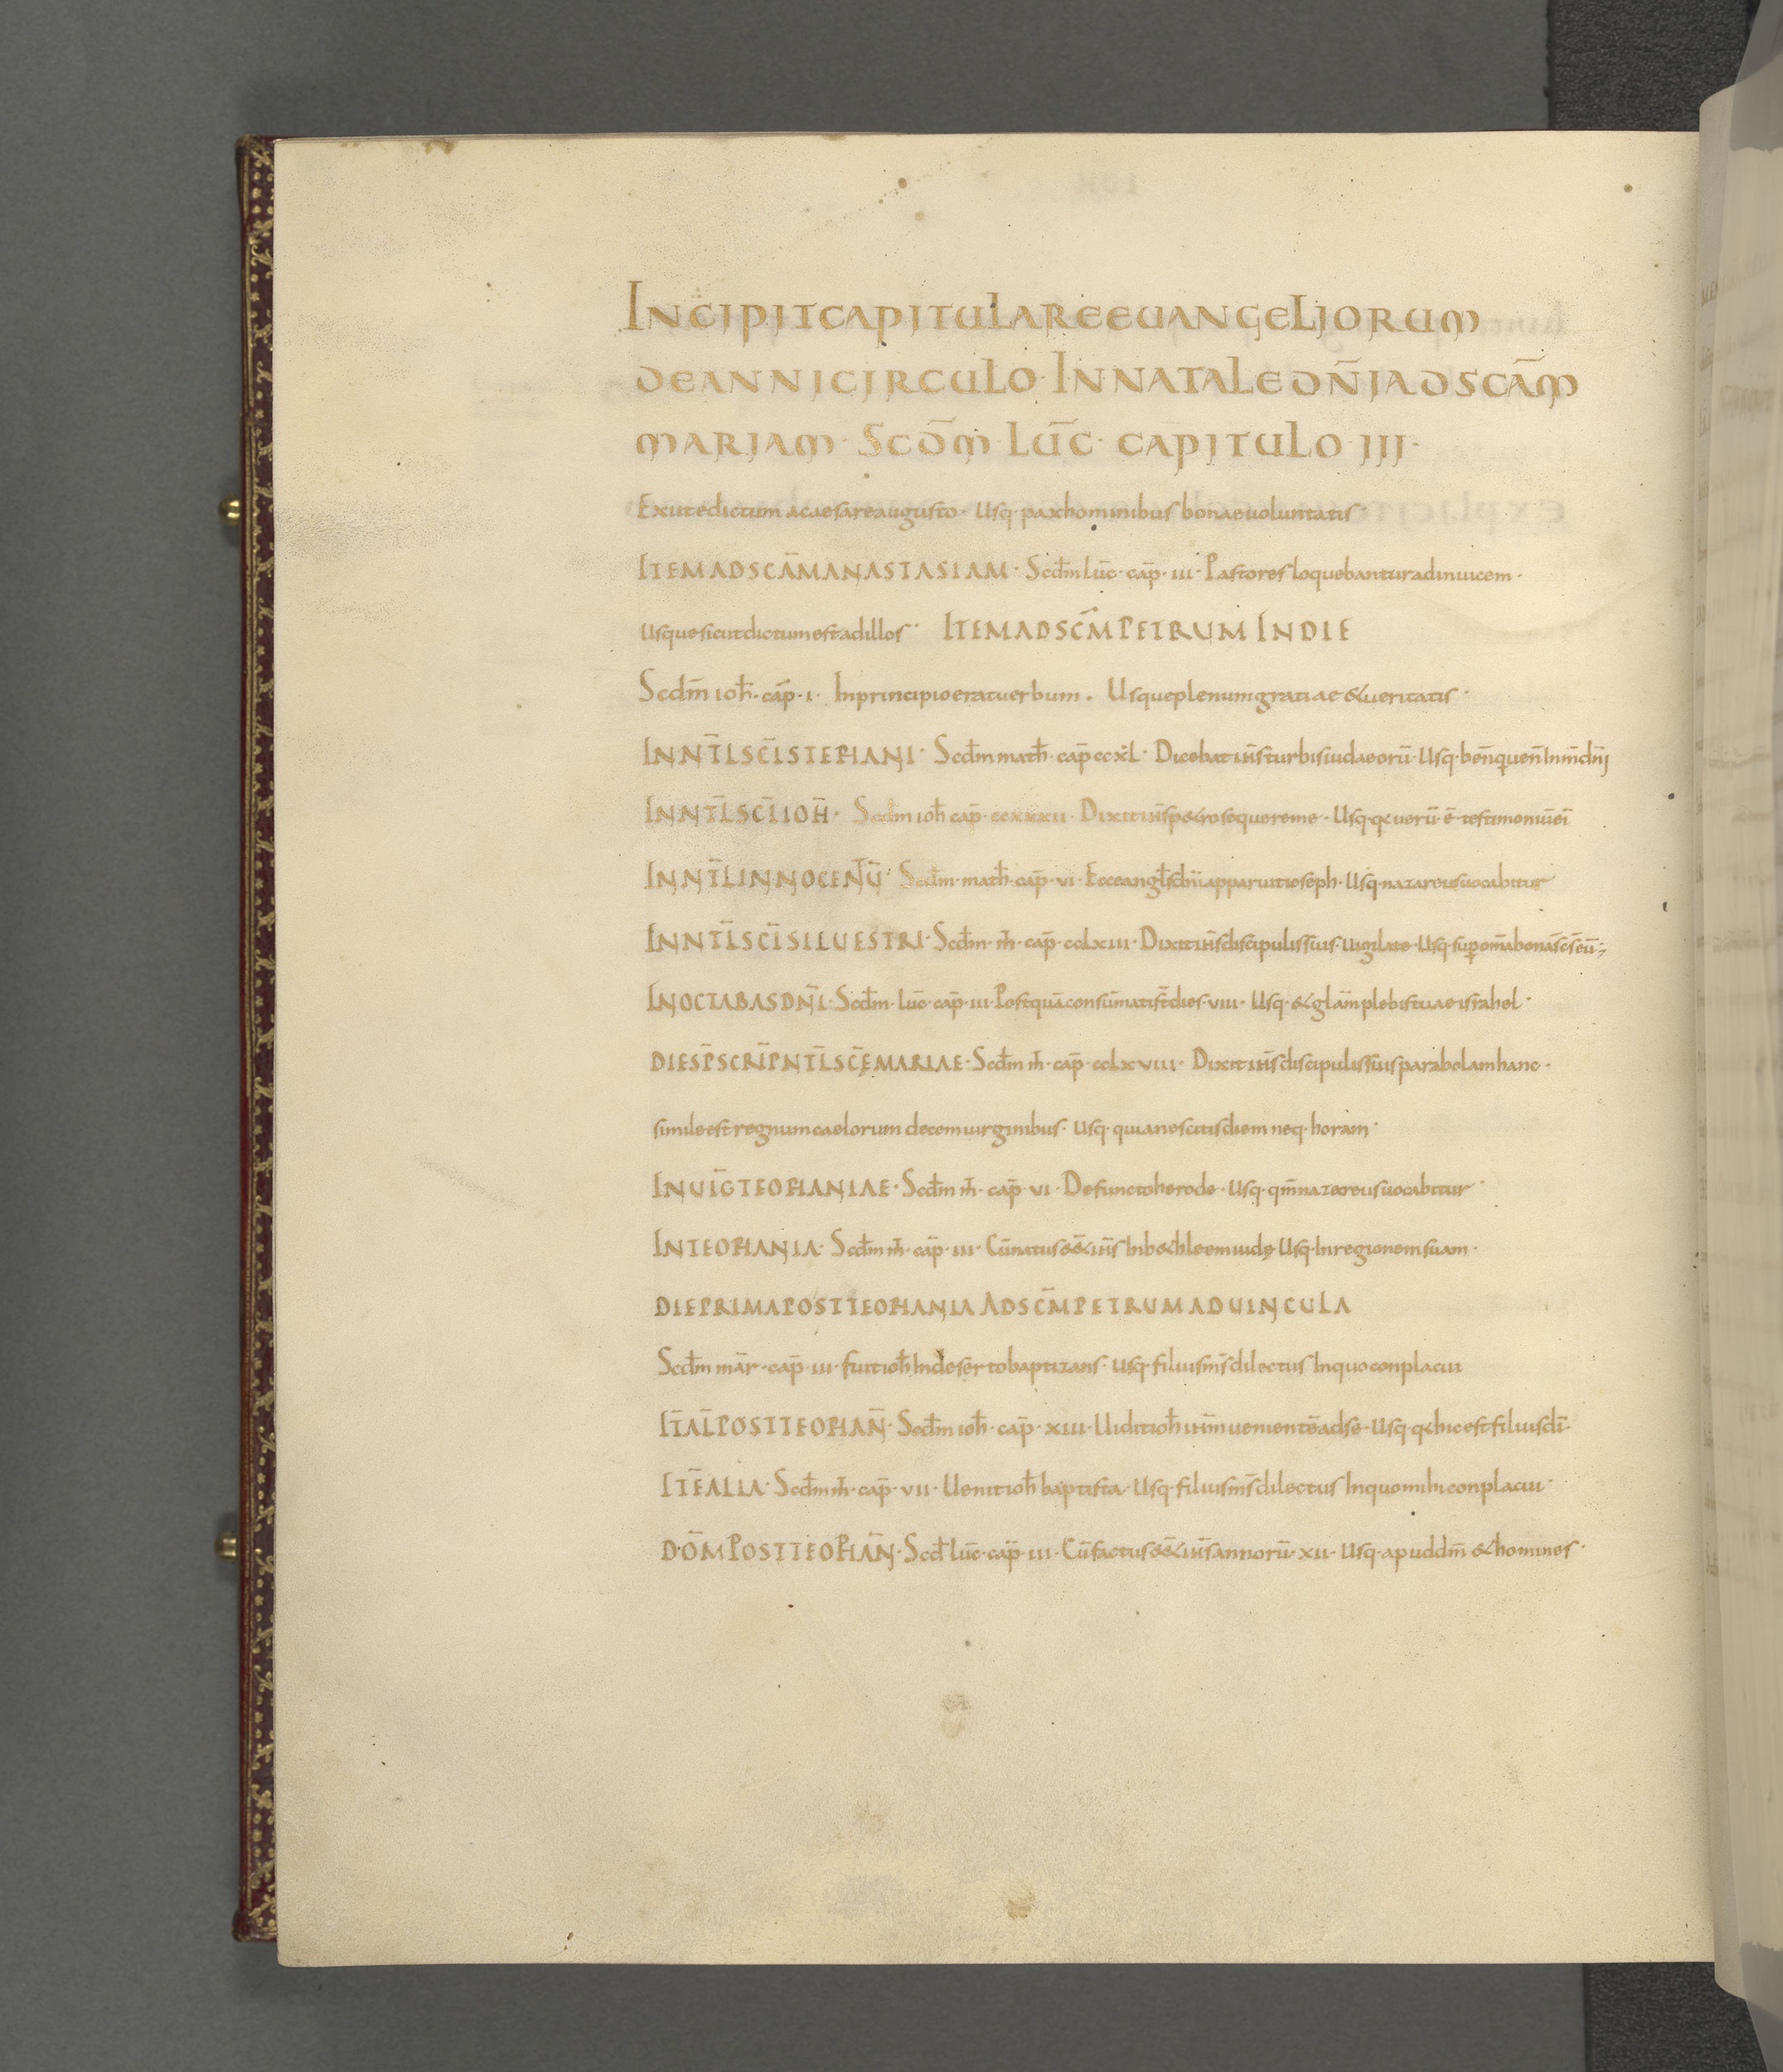 INCIPIT CAPITULARE EUANGELIORUM
DE ANNI CIRCULO · IN NATALE DN̄I AD SCĀM
MARIAM · SCD̄M LŪC · CAPITULO · III ·
Exiit edictum a caesare augusto · Usq· pax hominibus bonae uoluntatis ·
ITEM AD SCĀM ANASTASIAM · Scdm̄ lūc · cap̄ · III · Pastores loquebantur adinuicem ·
Usque sicut dictum est ad illos · ITEM AD SC̄M PETRUM IN DIE
Scdm̄ ioh̄ · cap̄ · I · In principio erat uerbum . Usque plenum gratiae & ueritatis ·
IN NT̄L SC̄I STEPHANI · Scdm̄ math̄ · cap̄ ccxl · Dicebat ih̄s turbis iudaeorū · Usq· ben̄ qui uen̄ In nn̄ dn̄i
IN NT̄L SC̄I IOH̄ · Scdm̄ ioh̄ cap̄ · ccxxxii · Dixit ih̄s p&ro sequere me · Usq· q̄ uerū ē testimoniū ei
IN NT̄L INNOCENTŪ · Scdm̄ · math̄ · cap̄ · vi · Ecce angl̄s dn̄i apparuit ioseph · Usq· nazareus uocabitur
IN NT̄L SC̄I SILUESTRI · Scdm̄ · m̄ · cap̄ · cclxiii · Dixit ih̄s discipulis suis · uigilate · Usq· sup̄ om̄a bona s̄ c̄s eū ·,
IN OCTABAS DN̄I · Scdm̄ · lūc · cap̄ · iii · Postquā consūmati s̄t dies · viii · Usq· & glām plebis tuae israhel ·
DIES P̄SCRĪP NT̄L SC̄Ę MARIAE · Scdm̄ m̄ · cap̄ · cclxviii · Dixit ih̄s discipulis suis parabolam hanc ·
simile est regnum caelorum decem uirginibus · Usq· quia nescitis diem neq· horam ·
IN UIḠ TEOPHANIAE · Scdm̄ m̄ · cap̄ · vi · Defuncto herode · Usq· qm̄ nazareus uocabitur ·
IN TEOPHANIA · Scdm̄ m̄ · cap̄ · iii · Cū natus ess& ih̄s In b&hleem iudę Usq· In regionem suam ·
DIE PRIMA POST TEOPHANIA AD SC̄M PETRUM AD UINCULA
Scdm̄ mār · cap̄ · iii · fuit ioh̄ In deserto baptizans · usq· filius m̄s dilectus In quo conplacui
IT̄ AL̄ POST TEOPHAN̄ · Scdm̄ ioh̄ · cap̄ · xiii · Uidit ioh̄ ih̄m uenientē ad se · Usq· q̄ hic est filius dī ·
ITĒ ALIA · Scdm̄ m̄ · cap̄ · vii · Uenit ioh̄ baptista · Usq· filius m̄s dilectus In quo mihi conplacui ·
D·OM̄ POST TEOPHAN̄ · Scd̄ lūc · cap̄ · iii · Cū factus ess& ih̄s annorū · xii · Usq· apud dm̄ & homines ·